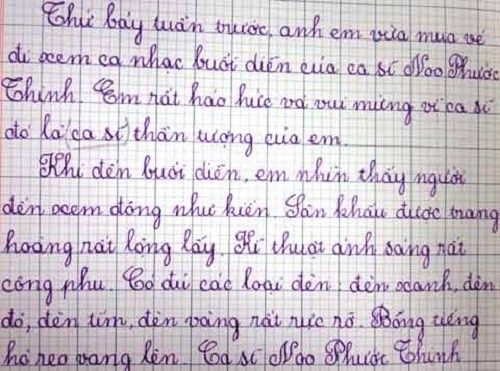 Thứ bảy tuần trước, anh em vừa mua vé
đi xem ca nhạc buổi diễn của ca sĩ Noo Phước
Thịnh. Em rất háo hức và vui mừng vì ca sĩ
đó là ca sĩ thần tượng của em.
Khi đến buổi diễn, em nhìn thấy người
đến xem đông như kiến. Sân khấu được trang
hoàng rất lộng lấy. Kĩ thuật ánh sáng rất
công phu. Có đủ các loại đèn: đèn xanh, đèn
đỏ, đèn tím, đèn vàng rất rực rỡ. Bỗng tiếng
hò reo vang lên. Ca sĩ Noo Phước Thịnh